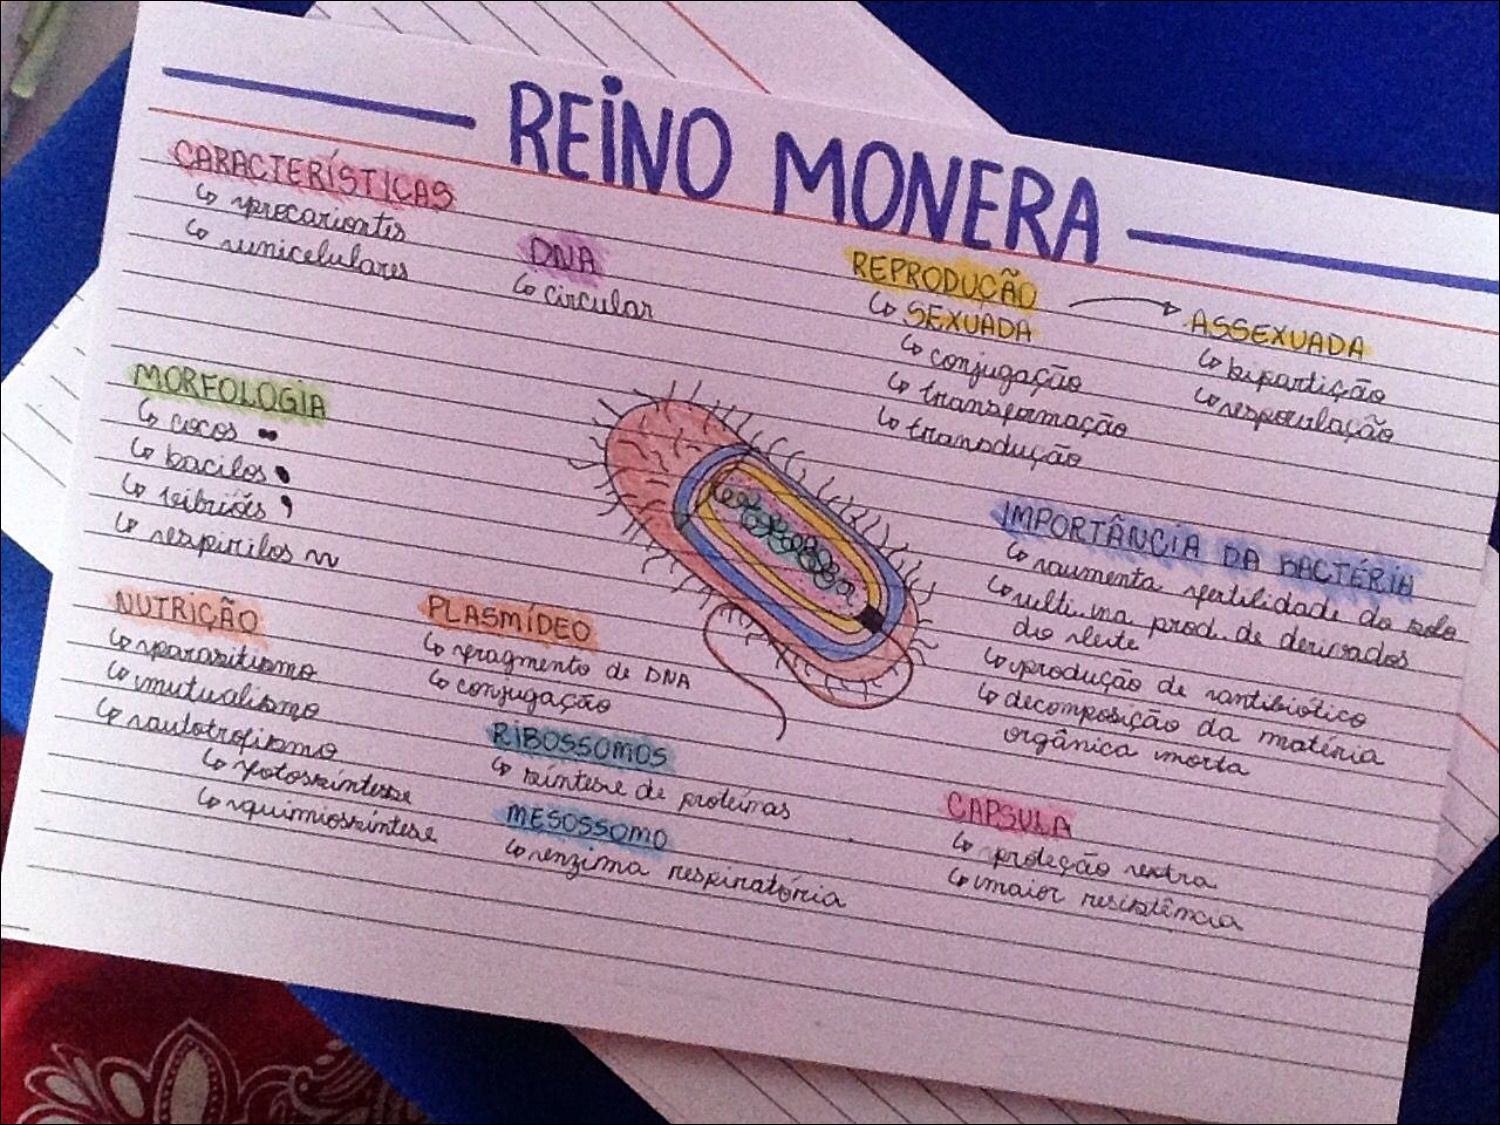 REINO MONERA
CARACTERÍSTICAS
↳ procariontes
↳ unicelulares
DNA
↳ circular
REPRODUÇÃO → ASSEXUADA
↳ SEXUADA
↳ conjugação
↳ transformação
↳ transdução
↳ bipartição
↳ esporulação
MORFOLOGIA
↳ cocos
↳ bacilos
↳ vibriões
↳ espirilos
NUTRIÇÃO
↳ parasitismo
↳ mutualismo
↳ autotrofismo
↳ fotossíntese
↳ quimiossíntese
PLASMÍDEO
↳ fragmento de DNA
↳ conjugação
RIBOSSOMOS
↳ síntese de proteínas
MESOSSOMO
↳ enzima respiratória
IMPORTÂNCIA DA BACTÉRIA
↳ aumenta fertilidade do solo
↳ util na prod. de derivados
do leite
↳ produção de antibiótico
↳ decomposição da matéria
orgânica morta
CAPSULA
↳ proteção extra
↳ maior resistência